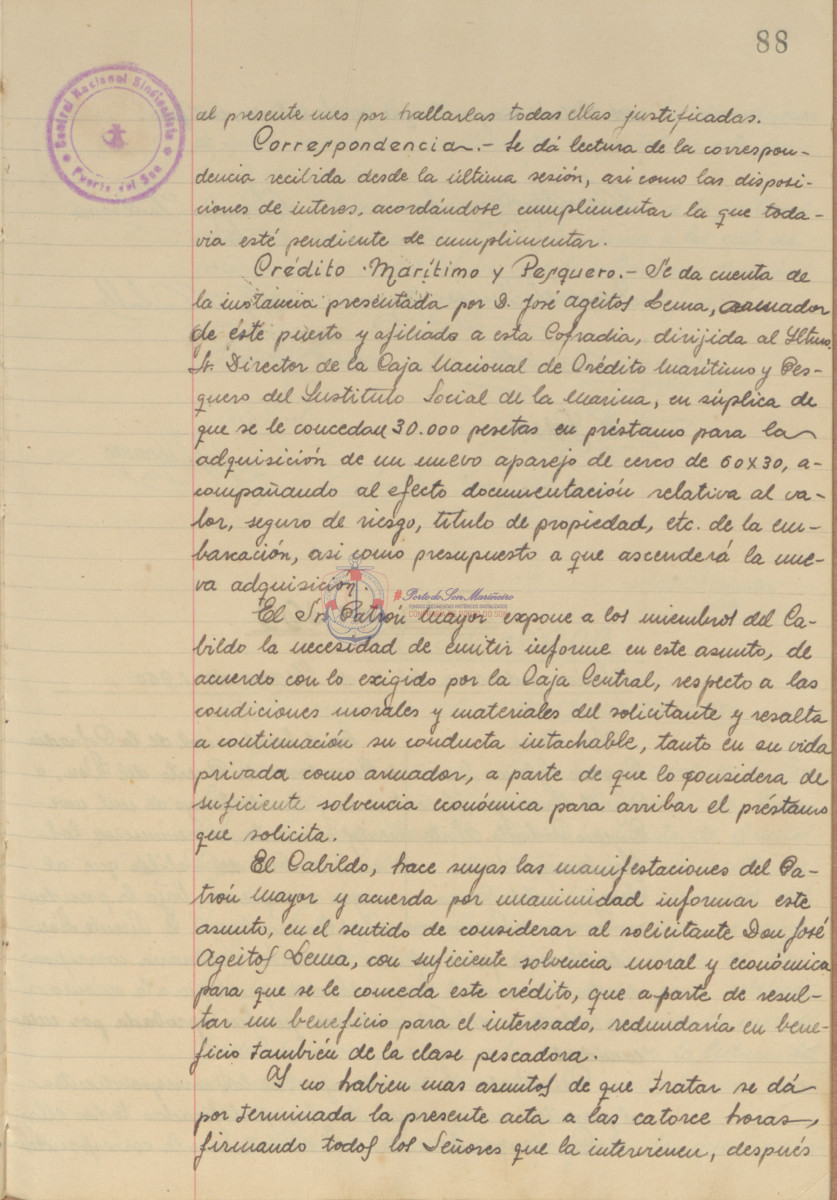 88
Central Nacional Sindicalista
Puerto del Son
al presente mes por hallarlas todas ellas justificadas.
Correspondencia.- Se dá lectura de la correspon-
dencia recibida desde la última sesión, asi como las disposi-
ciones de interes, acordándose cumplimentar la que toda-
via esté pendiente de cumplimentar.
Crédito Marítimo y Pesquero.- Se da cuenta de
la instancia presentada por D. José Ageitos Lema, armador
de éste puerto y afiliado a esta Cofradia, dirijida al Iltmo.
Sr. Director de la Caja Nacional de Crédito Marítimo y Pes-
quero del Instituto Social de la Marina, en súplica de
que se le concedan 30.000 pesetas en préstamo para la
adquisición de un nuevo aparejo de cerco de 60X30, a-
compañando al efecto documentación relativa al va-
lor, seguro de riesgo, título de propiedad, etc. de la em-
barcación, asi como presupuesto a que ascenderá la nue-
va adquisición.
#PortodoSonMariñeiro
El Sr. Patrón Mayor expone a los miembros del Ca-
bildo la necesidad de emitir informe en este asunto, de
acuerdo con lo exigido por la Caja Central, respecto a las
condiciones morales y materiales del solicitante y resalta
a continuación su conducta intachable, tanto en su vida
privada como armador, a parte de que lo considera de
suficiente solvencia económica para arribar el préstamo
que solicita.
El Cabildo, hace suyas las manifestaciones del Pa-
trón Mayor y acuerda por unanimidad informar este
asunto, en el sentido de considerar al solicitante Don José
Ageitos Lema, con suficiente solvencia moral y económica
para que se le conceda este crédito, que a parte de resul-
tar un beneficio para el interesado, redundaría en bene-
ficio también de la clase pescadora.
Y no habien mas asuntos de que tratar se dá
por terminada la presente acta a las catorce horas,
firmando todos los Señores que la intervienen, después